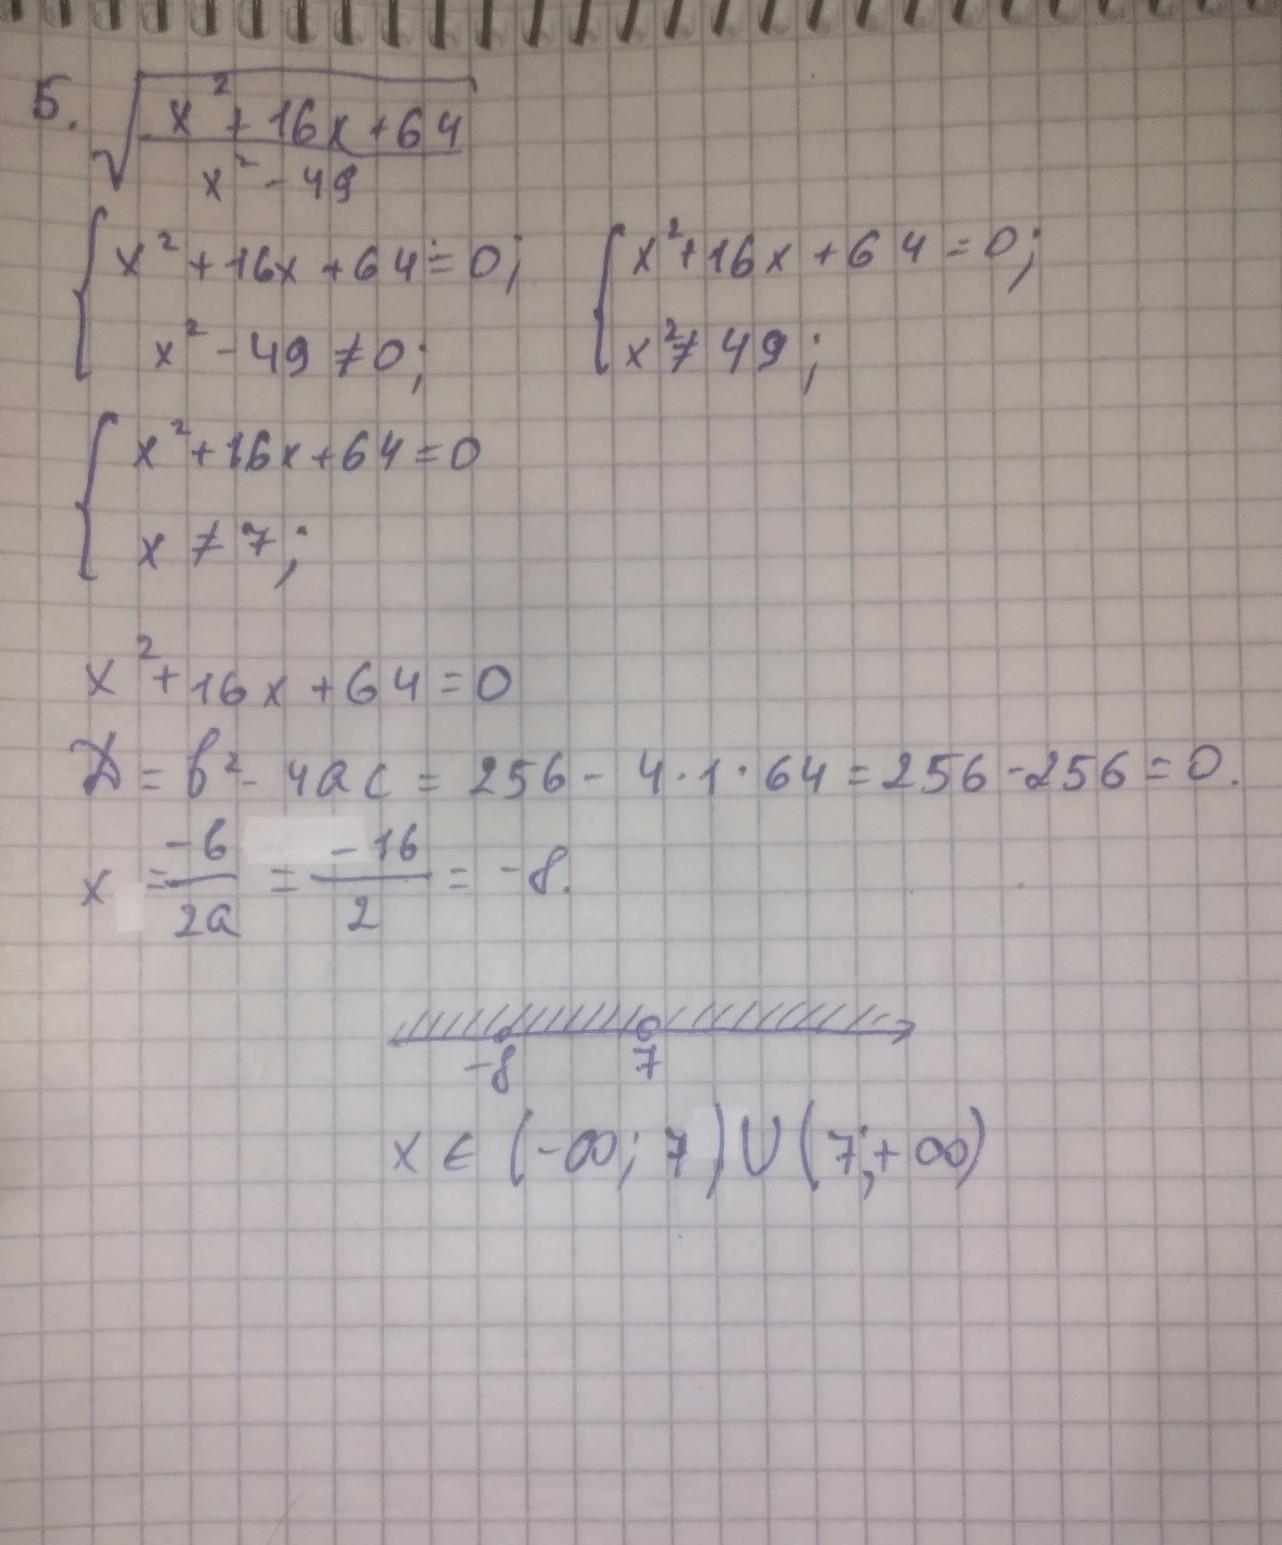 5. √((x² + 16x + 64)/(x² - 49))
{ x² + 16x + 64 = 0; { x² + 16x + 64 = 0;
x² - 49 ≠ 0; x² ≠ 49;
{ x² + 16x + 64 = 0
x ≠ 7;
x² + 16x + 64 = 0
D = b² - 4ac = 256 - 4·1·64 = 256 - 256 = 0.
x = -b/2a = -16/2 = -8.
-8 7
x ∈ (-∞; 7) ∪ (7; +∞)